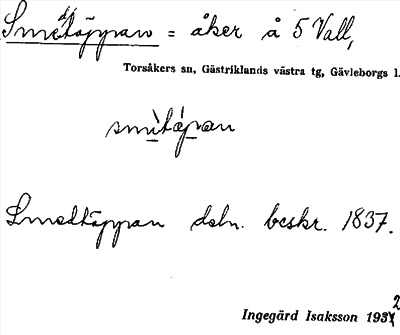 Smedjtäppan = åker å 5 Vall,
Torsåkers sn, Gästriklands västra tg, Gävleborgs l.
smìtápan
Smedtäppan dsbn. beskr. 1837.
Ingegärd Isaksson 1932